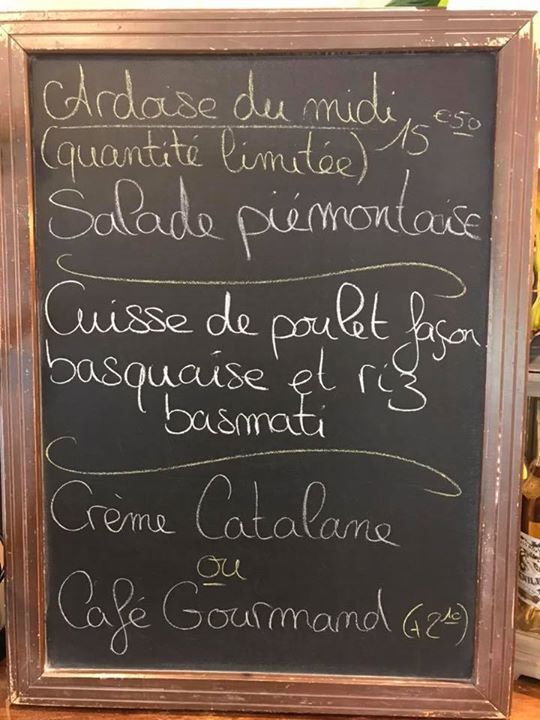 Ardoise du midi
(quantité limitée) 15 €50
Salade piémontaise
Cuisse de poulet façon
basquaise et riz
basmati
Crème Catalane
ou
Café Gourmand (+2 10)